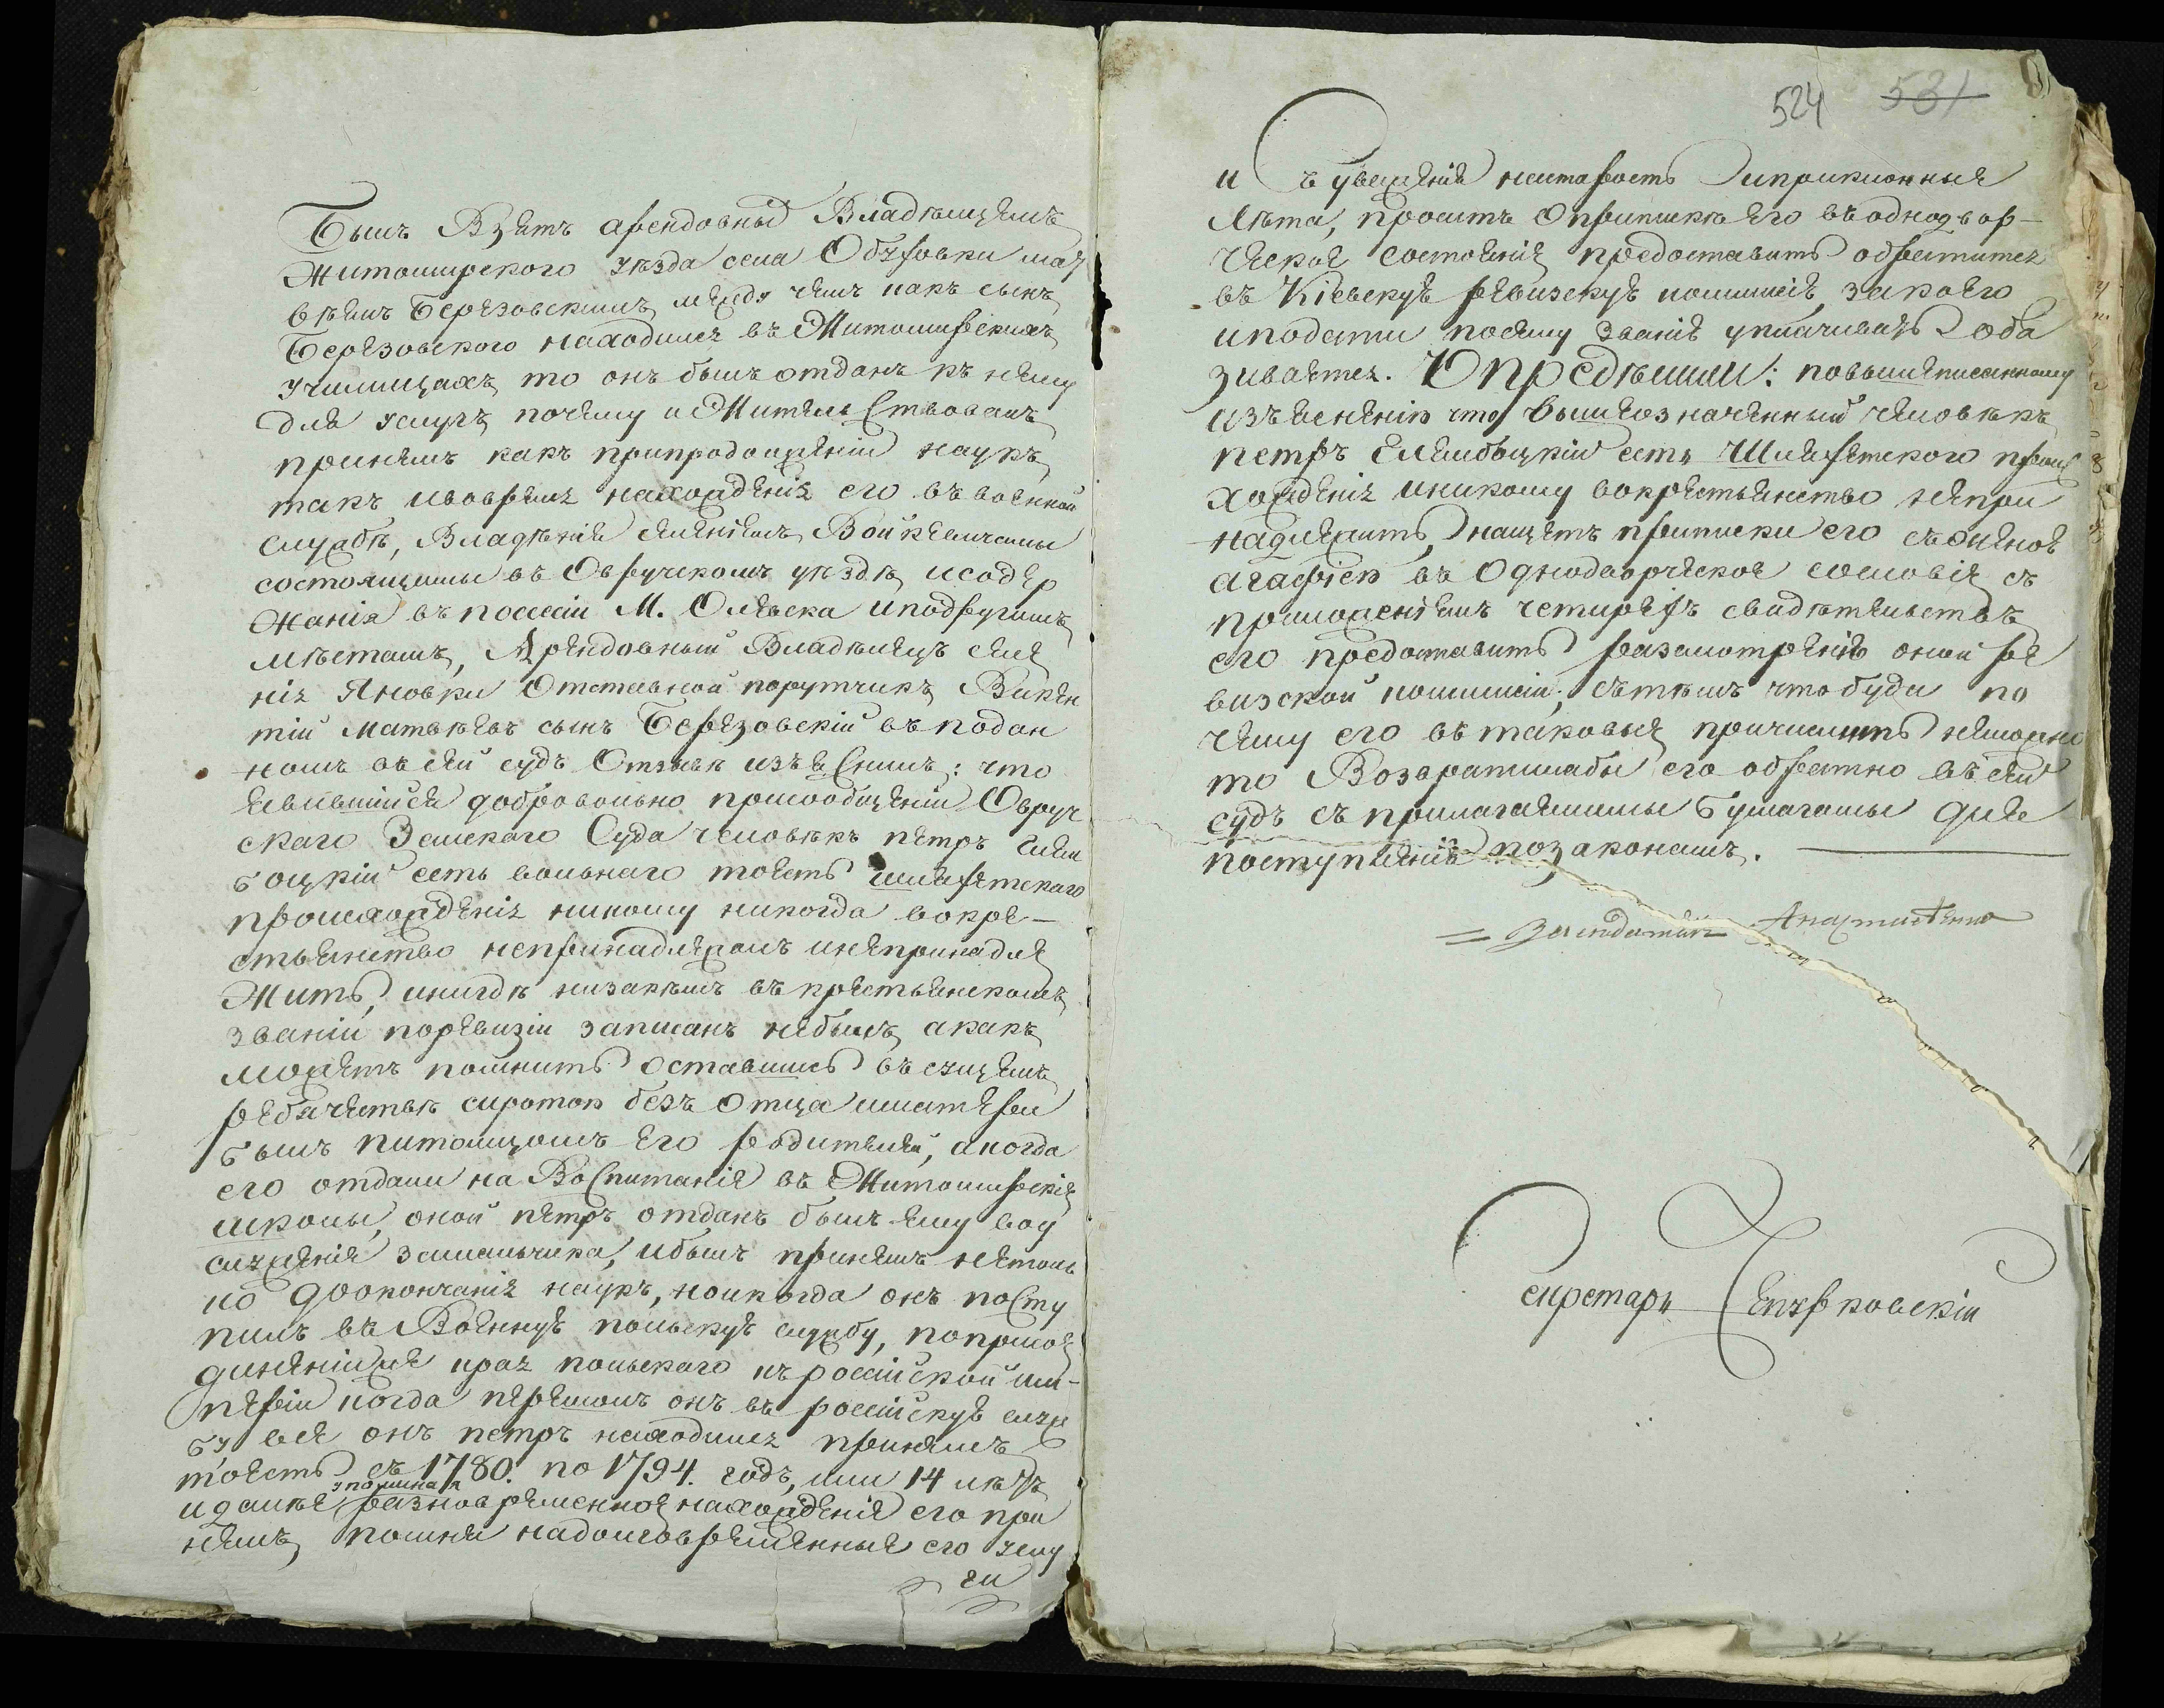 Былъ Взятъ арендовный Владѣльцемъ
Житомирского уѣзда села Обуховки мат
вѣемъ Березовскимъ, между чемъ какъ сынъ
Березовского находился въ Житомирскихъ
училищахъ, то онъ былъ отданъ къ нему
для услугъ, почему и Жительствовалъ
принемъ какъ припродолженіи наукъ,
такъ ивовремя нахожденія его въ военной
службѣ, Владѣнія имѣніемъ
состоящимы въ Овручскомъ уѣздѣ, исодер
жанія въ поссесіи М. Олевска иподругимъ
мѣстамъ, Арендовный Владѣлецъ селе
нія Яновки Отставной порутчикъ Викен
тій Матвѣевъ сынъ Березовскій въ подан
номъ въ сей судъ Отзывѣ изъяснилъ: что
явившійся добровольно присообщеніи Овруч
скаго Земскаго Суда человѣкъ петръ
боцкій есть вольнаго тоесть шляхетскаго
происхожденія никому никогда вокре-
стьянство непринадлежалъ инепринадле
житъ, инигдѣ низакѣмъ въ крестьянскомъ
званіи поревизіи записанъ небылъ, акакъ
можетъ помнить оставшись въ сущемъ
ребячествѣ сиротою безъ отца иматери
былъ питомцомъ его родителей, акогда
его отдали на Воспитаніе въ Житомирскія
школы, оной петръ отданъ былъ ему воу
служеніе замальчика, ибылъ принемъ нетоль
ко доокончанія наукъ, ноикогда онъ посту
пилъ въ Военную польскую службу, поприсое
диненіиже края польскаго къ россійской им-
періи когда перешолъ онъ въ россійскую служ
бу все онъ петръ находился принемъ
тоесть съ 1780. по 1794. годъ, или 14 лѣтъ
упоминая
идалѣе разновременное нахожденіе его при
немъ, помня надолговременные его услу
ги
524 531
и Въ уваженіе настарость Липриклонные
Лѣта, проситъ Опрыпискѣ его въ однодвор-
ческое состояніе предоставить обратится
въ Кіевскую ревизскую комисію, закоего
иподати посему званію уплачивать оба
зивается. Опредѣлили: повышеписанному
изъясненію что вышеозначенный человѣкъ
петръ есть Шляхетского проис
хожденія иникому вокрестьянство непри
надлежитъ, нащетъ приписки его съженою
агафіею въ Однодворческое сословіе съ
приложеніемъ четирехъ свидѣтельствъ
его предоставить разсмотренію оной ре
визской комисіи; сътѣмъ что буди по
чему его въ таковые причислить неможно
то Возвратилабы его обратно въ сей
судъ съ прилагаемимы бумагамы для
поступленія позаконамъ.
секретарь